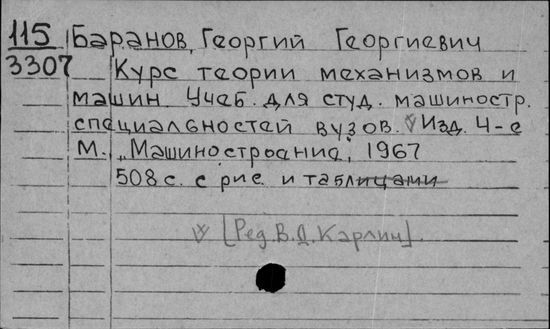 115
3307
Баранов, Георгий Георгиевич
Курс теории механизмов и
машин. Учеб. для студ. машиностр.
специальностей вузов. Изд. 4-е
М., "Машиностроение", 1967
508 с. с рис. и таблицами
[Ред. В. Д. Карлин].